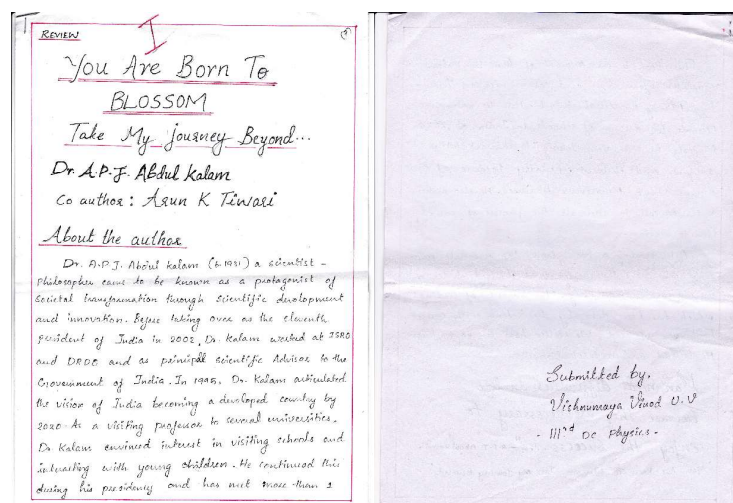 REVIEW
I
You Are Born To
BLOSSOM
Take My Journey Beyond...
Dr. A.P.J. Abdul Kalam
Co author : Arun K Tiwari
About the author
Dr. A.P.J. Abdul Kalam (b.1931) a scientist -
philosopher came to be known as a protagonist of
societal transformation through scientific development
and innovation. Before taking over as the eleventh
president of India in 2002, Dr. Kalam worked at ISRO
and DRDO and as principal scientific Advisor to the
Government of India. In 1995, Dr. Kalam articulated
the vision of India becoming a developed country by
2020. As a visiting professor to several universities,
Dr. Kalam envinced interest in visiting schools and
interacting with young children. He continued this
during his presidency and has met more than 1
Submitted by,
Vishnumaya Vinod U.V
- IIIrd DC Physics -